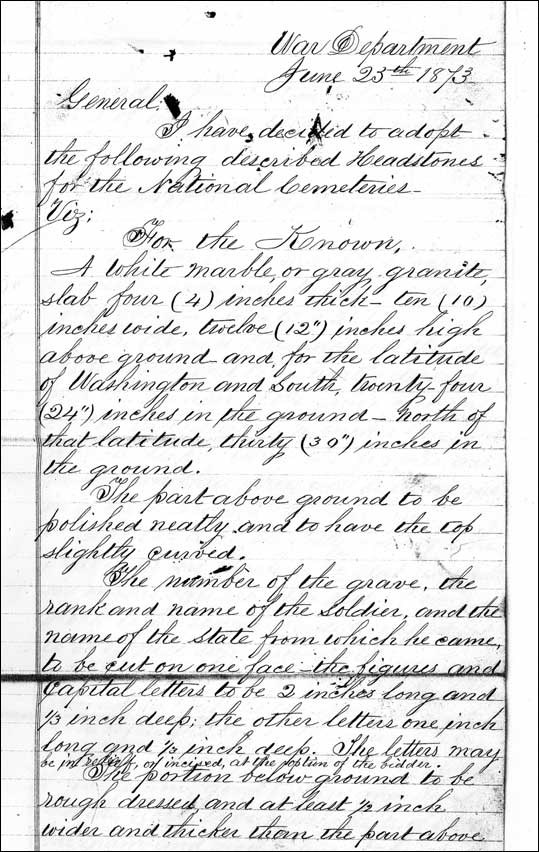 War Department
June 23th 1873
General.
I have decided to adopt
the following described Headstones
for the National Cemeteries —
Viz:
For the Known,
A White marble, or gray granite,
slab four (4) inches thick — ten (10)
inches wide, twelve (12") inches high
above ground and, for the latitude
of Washington and South, twenty-four
(24") inches in the ground — North of
that latitude, thirty (30") inches in
the ground.
The part above ground to be
polished neatly and to have the top
slightly curved.
The number of the grave, the
rank and name of the soldier, and the
name of the State from which he came,
to be cut on one face — the figures and
Capital letters to be 2 inches long and
1/3 inch deep; the other letters one inch
long and 1/3 inch deep. The letters may
be in relief, or incised, at the option of the bidder.
The portion below ground to be
rough dressed and at least 1/2 inch
wider and thicker than the part above